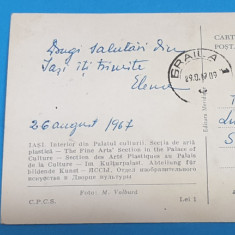 Dragi salutări din
Iași îți trimite
Elena
26 august 1967
IAȘI. Interior din Palatul culturii. Secția de artă
plastică — The Fine Arts' Section in the Palace of
Culture — Section des Arts Plastiques au Palais
de la Culture — Im Kulturpalast. Abteilung für
bildende Kunst — ЯССЫ. Отдел изобразительного
искусства в Дворце культуры
Foto: M. Volbură
C.P.C.S.
Lei 1
CARTE
POSTA
BRAILA